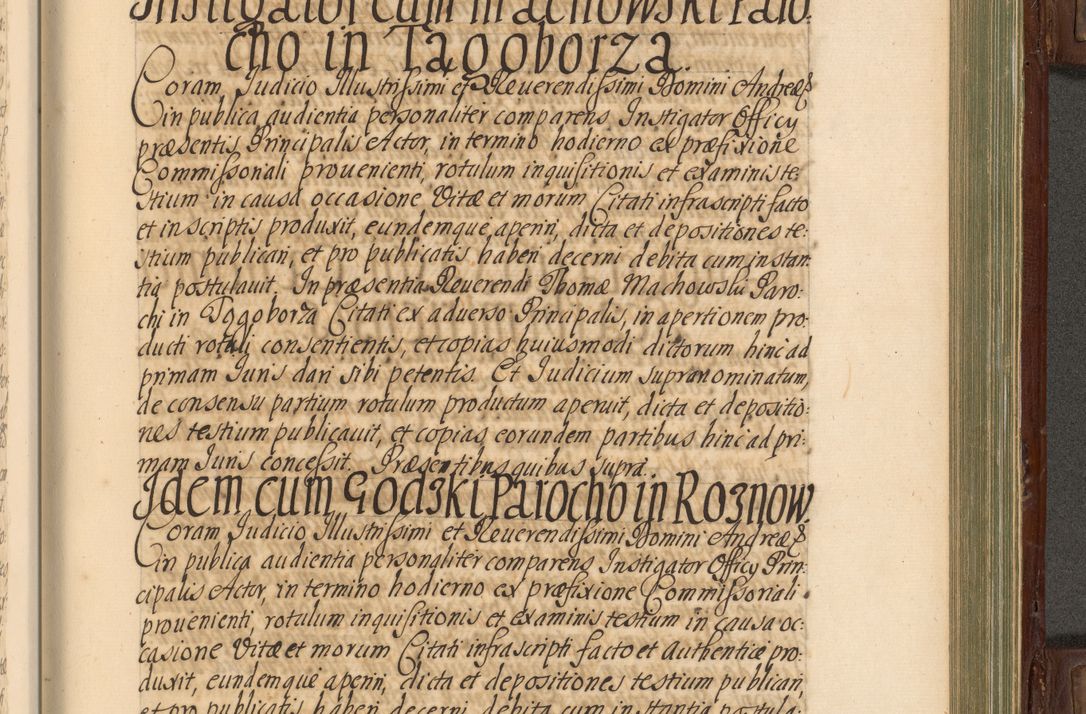 Instigator cum Machowski Paro:
cho in Tagoborza.
Coram Judicio Illustrissimi et Reuerendissimi Domini Andreæ &
in publica audientia personaliter comparens Instigator Officy
præsentis Principalis Actor, in termino hodierno ex præfixione
Commissoriali prouenienti, rotulum inquisitionis et examinis te:
stium in causa occasione Vitæ et morum Citati infrascripti facto
et in scriptis produxit, eundemque aperiri, dicta et depositiones te:
stium publicari, et pro publicatis haberi decerni debita cum instan:
tia postulauit. In præsentia Reuerendi Thomæ Machowski Paro:
chi in Togoborza Citati ex aduerso Principalis, in apertionem pro:
ducti rotuli consentientis, et copias huiusmodi dictorum hinc ad
primam Juris dari sibi petentis. Et Judicium supranominatum,
de consensu partium rotulum productum aperuit, dicta et depositio:
nes testium publicauit, et copias eorundem partibus hinc ad pri:
mam Juris concessit. Præsentibus quibus supra.
Idem cum Godzki Parocho in Roznow.
Coram Judicio Illustrissimi et Reuerendissimi Domini Andreæ &
in publica audientia personaliter comparens Instigator Officy Prin:
cipalis Actor, in termino hodierno ex præfixione Commissoriali
prouenienti, rotulum inquisitionis et examinis testium in causa oc:
casione Vitæ et morum Citati infrascripti facto et authenticè pro:
duxit, eundemque aperiri, dicta et depositiones testium publicari,
et pro publicatis haberi decerni debita cum instantia postula: